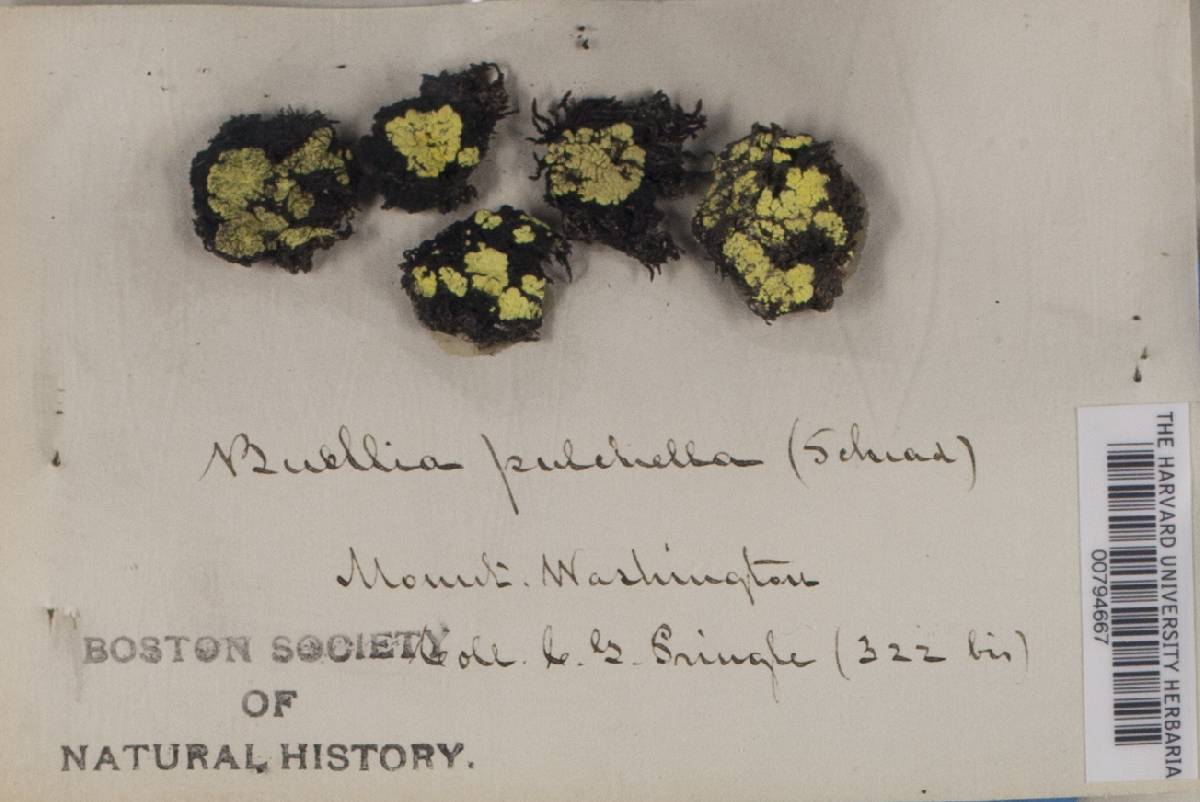 Buellia pulchella (Schrad)
Mount. Washington
Coll. C. G. Pringle (322 bis)
BOSTON SOCIETY
OF
NATURAL HISTORY.
THE HARVARD UNIVERSITY HERBARIA
00794667